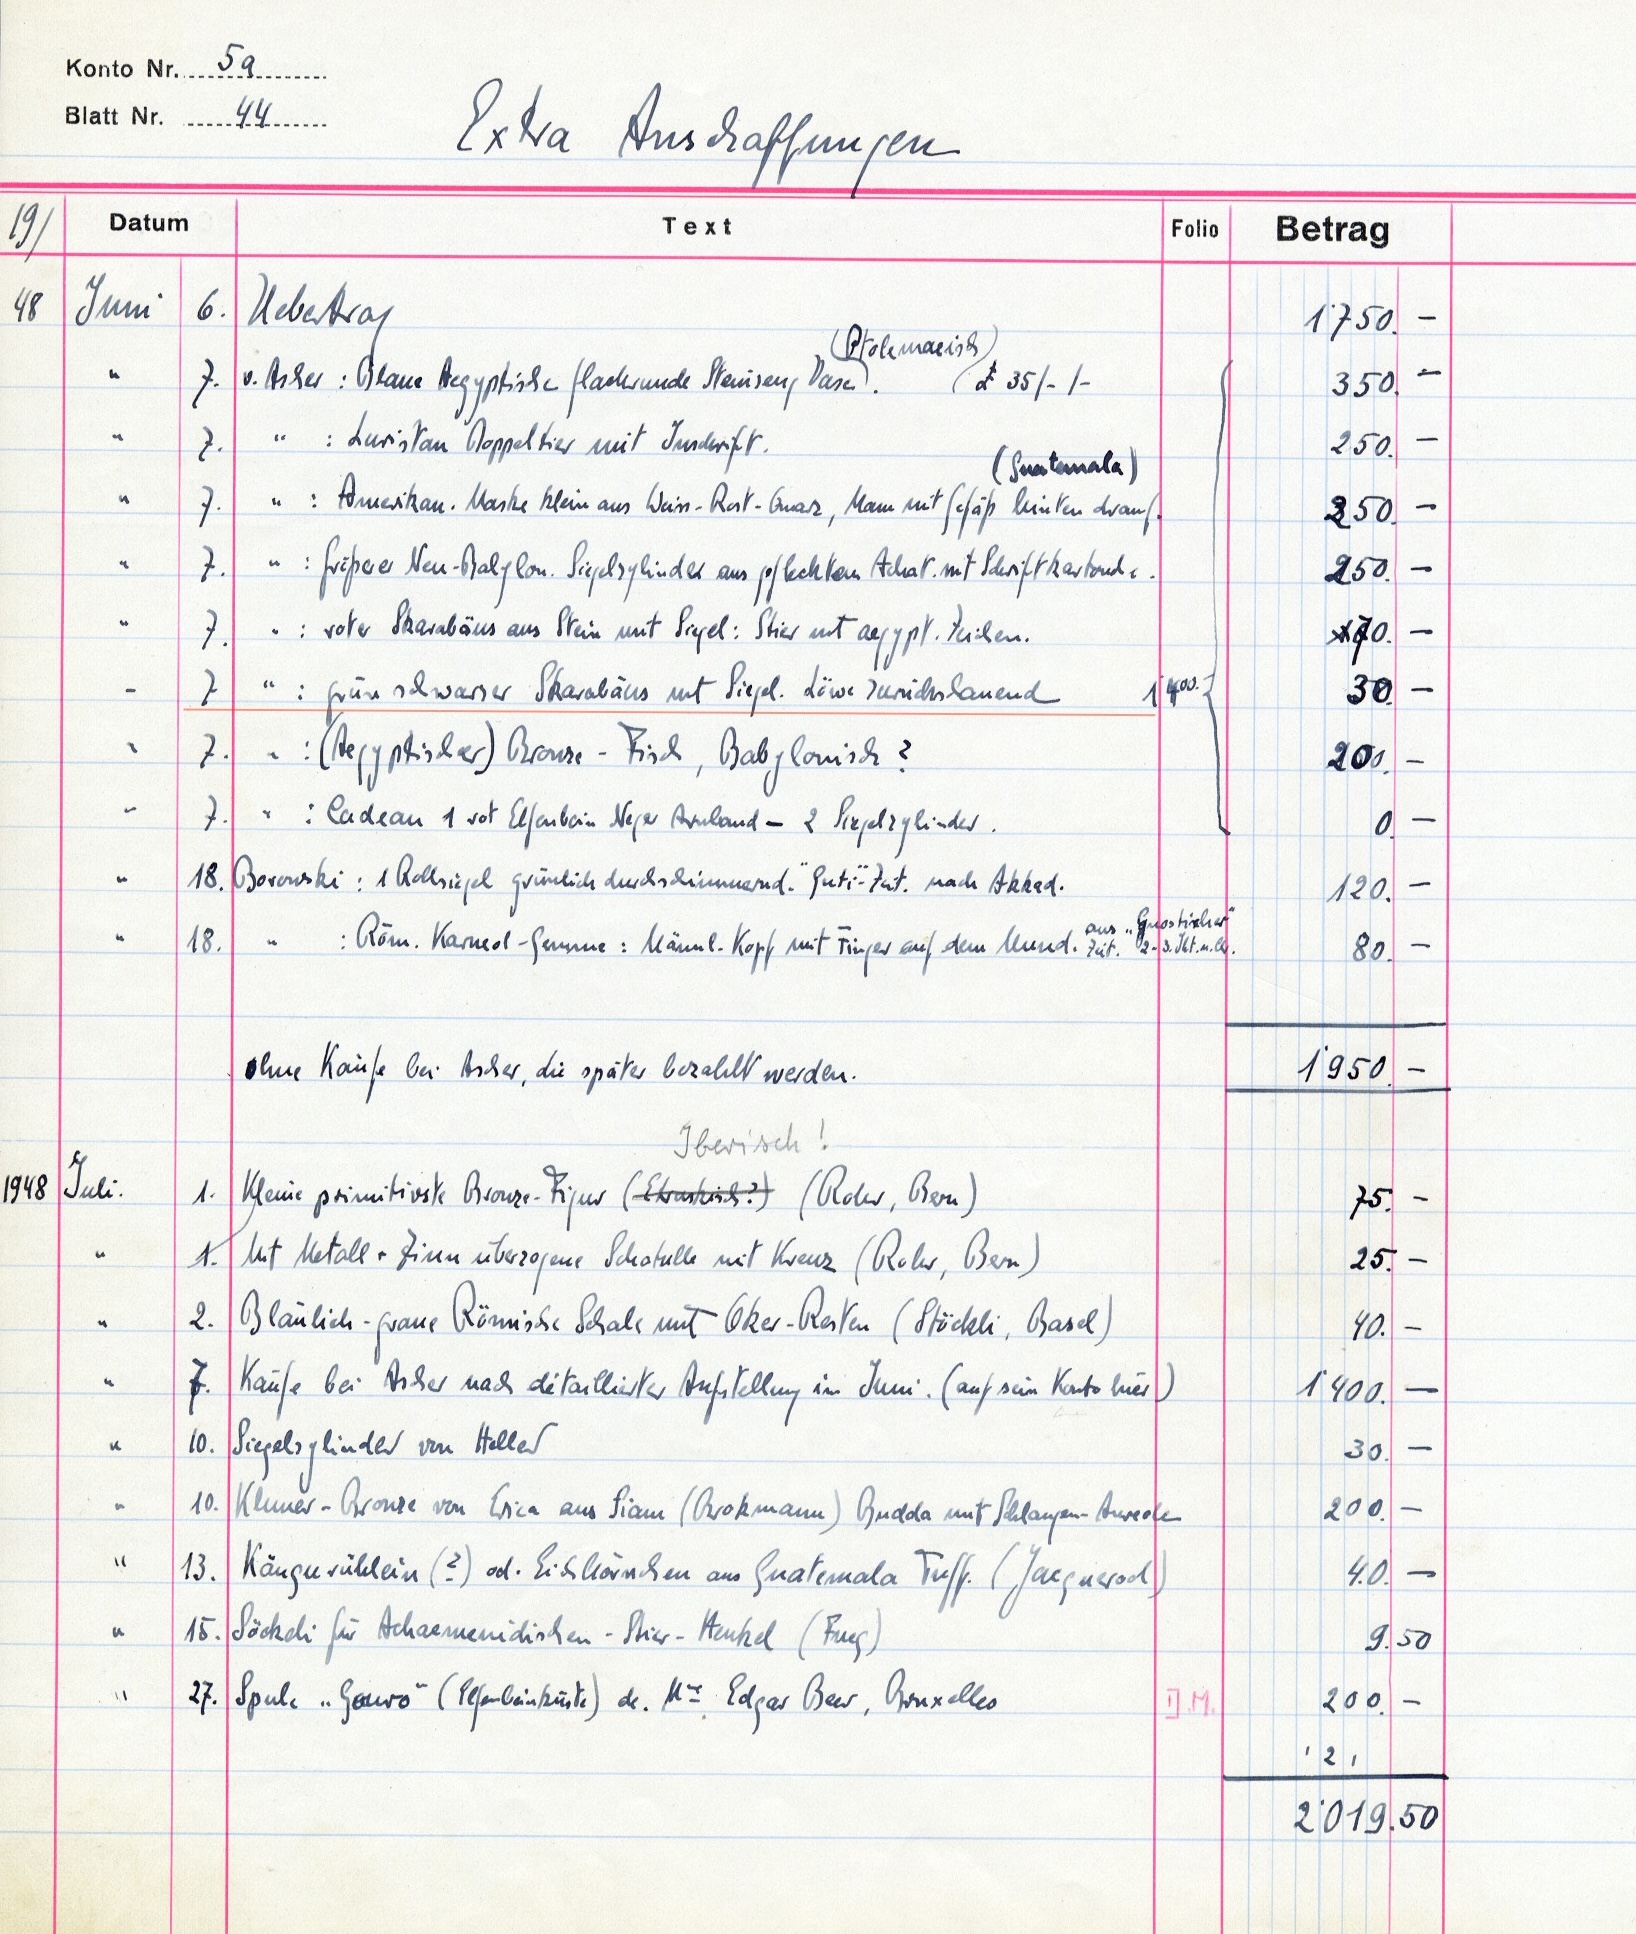 Konto Nr. 5a
Blatt Nr. 44
Extra Anschaffungen
19/ Datum Text Folio Betrag
48 Juni 6. Uebertrag 1'750. –
(Ptolemaeisch)
" 7. v. Ascher : Blaue Aegyptische flachrunde Steinzeug Vase. (£ 35/-/- 350. –
" 7. " : Luristan Doppeltier mit Inschrift. 250. –
(Guatemala)
" 7. " : Amerikan. Maske klein aus Weiss-Rost-Quarz, Mann mit Gefäß hinten drauf. 250. –
" 7. " : Größerer Neu-Babylon. Siegelzylinder aus geflecktem Achat. mit Schriftkartouche. 250. –
" 7. " : roter Skarabäus aus Stein mit Siegel: Stier mit aegypt. Zeichen. 70. –
" 7 " : grün schwarzer Skarabäus mit Siegel. Löwe zurückschauend 1'400.- 30 –
" 7. " : (Aegyptischer) Bronze-Fisch, Babylonisch ? 200. –
" 7. " : Cadeau 1 rot Elfenbein Neger Armband – 2 Siegelzylinder. 0. –
" 18. Borowski : 1 Rollsiegel grünlich durchschimmernd. "Guti"-Zeit. nach Akkad. 120. –
" 18. " : Röm. Karneol-Gemme : Männl. Kopf mit Finger auf dem Mund. aus „Gnostischer" Zeit. 2-3. Jht. n. Chr. 80. –
ohne Käufe bei Ascher, die später bezahlt werden. 1'950. –
Iberisch !
1948 Juli. 1. Kleine primitivste Bronze-Figur (Etruskisch?) (Rohr, Bern) 75. –
" 1. Mit Metall + Zinn überzogene Schatulle mit Kreuz (Rohr, Bern) 25. –
" 2. Bläulich-graue Römische Schale mit Oker-Resten (Stöckli, Basel) 40. –
" 7. Käufe bei Ascher nach détaillierter Aufstellung im Juni. (auf sein Konto hier) 1'400. –
" 10. Siegelzylinder von Heller 30. –
" 10. Khmer-Bronze von Erica aus Siam (Brokmann) Budda mit Schlangen-Aureole 200. –
" 13. Känguruhlein (?) od. Eichhörnchen aus Guatemala Tuff. (Jacquerod) 40. –
" 15. Söckeli für Achaemenidischen-Stier-Henkel (Frey) 9.50
" 27. Spule „Gouro" (Elfenbeinküste) de. Mr. Edgar Beer, Bruxelles I.M. 200. –
' 2 '
2'019.50